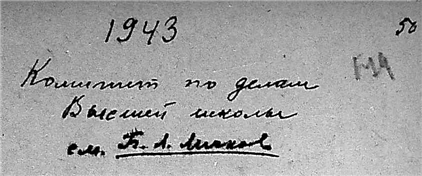 1943 50
Комитет по делам
Высшей школы
см. Б. Л. Личков